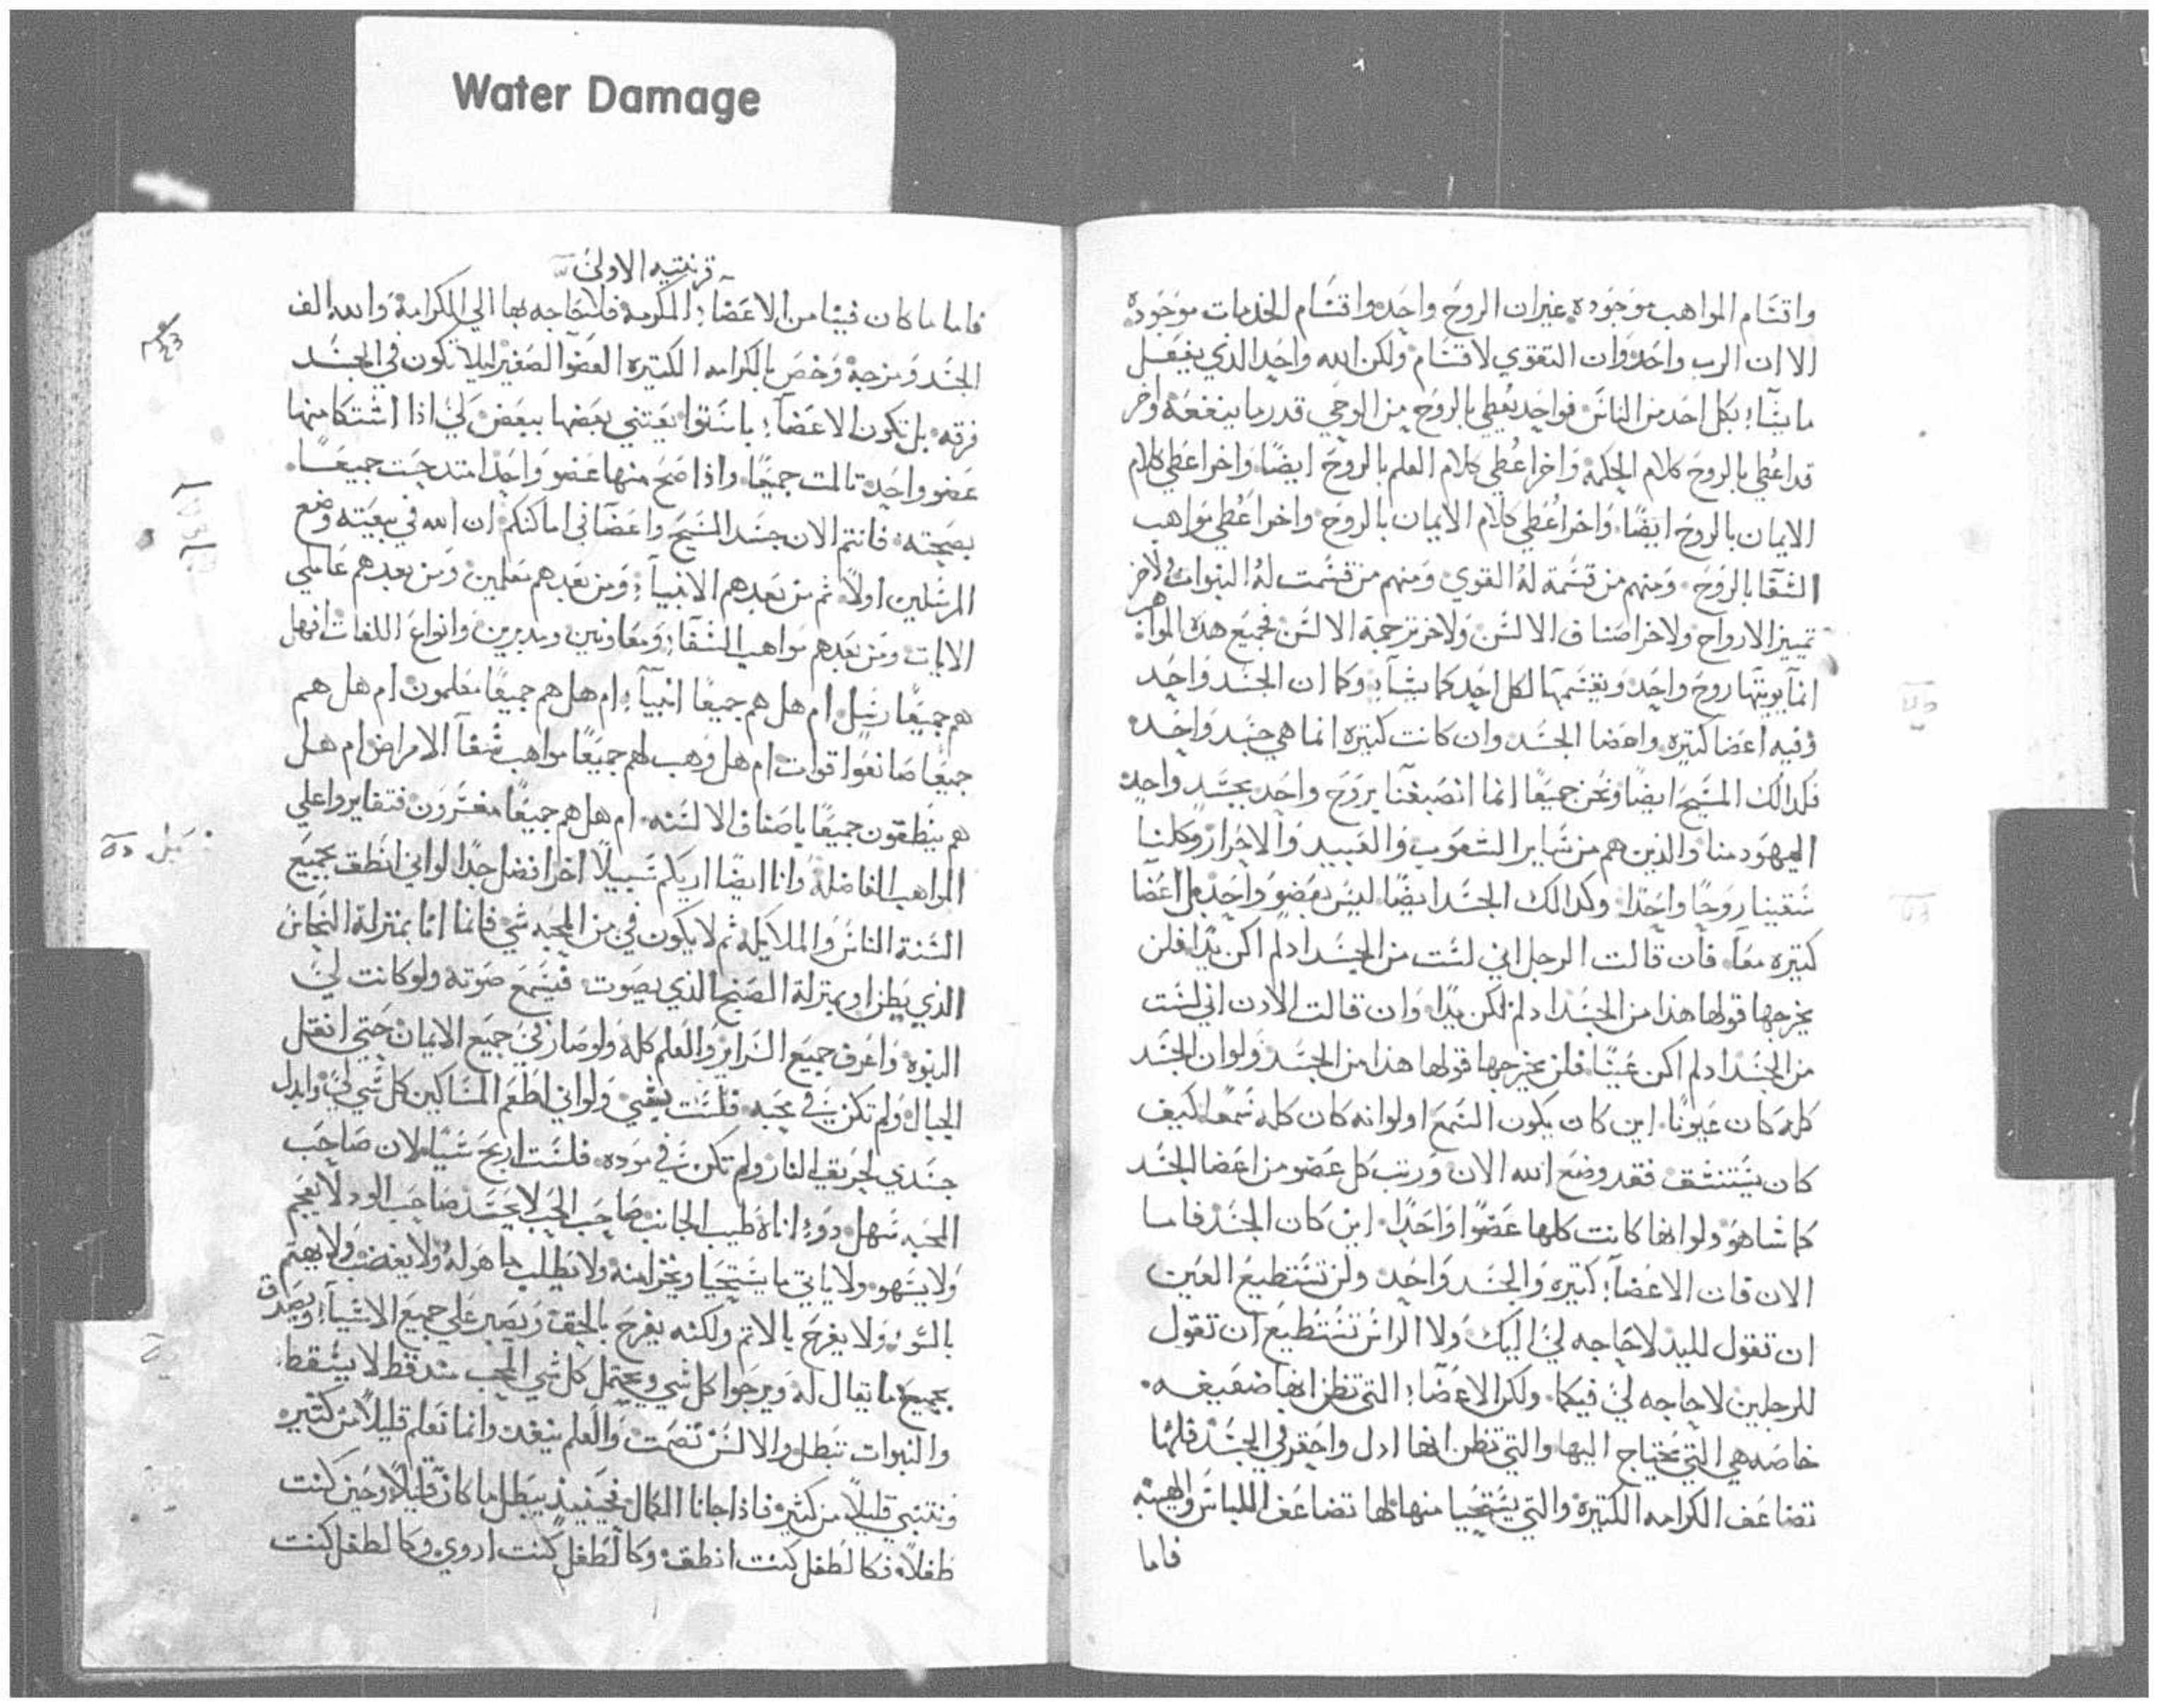 Water Damage
واقسام المواهب موجوده غير ان الروح واحد واقسام الخدمات موجوده
الا ان الرب واحد وان التقوي لاقسام ولكن الله واحد الذي يفعل
ما يشآء بكل احد من الناس فواحد يعطي بالروح من الوحي قدر ما ينفعه واخر
قد اعطي بالروح كلام الحكمة واخر اعطي كلام العلم بالروح ايضًا واخر اعطي كلام
الايمان بالروح ايضًا واخر اعطي كلام الايمان بالروح واخر اعطي مواهب
الشفا بالروح ومنهم من قسمة له القوي ومنهم من قسمت له النبوات ولاخر
تمييز الارواح ولاخر اصناف الالسن ولاخر ترجمة الالسن فجميع هذه المواهب
انما يوتيها روح واحد ويقسمها لكل احد كما يشآء وكما ان الجسد واحد
وفيه اعضا كتيره واعضا الجسد وان كانت كتيره انما هي جسد واحد
فكدالك المسيح ايضًا ونحن جميعًا انما انصبغنا بروح واحد بجسد واحد
اليهود منا والذين هم من ساير الشعوب والعبيد والاحرار وكلنا
سقينا روحًا واحدًا وكدالك الجسد ايضًا ليس بعضو واحد بل اعضا
كتيره معًا فان قالت الرجل اني لست من الجسد ادلم اكن يدًا فلن
يخرجها قولها هذا من الجسد ادلم تكن يدًا وان قالت الادن اني لست
من الجسد ادلم اكن عينًا فلن يخرجها قولها هذا من الجسد ولو ان الجسد
كله كان عيونًا اين كان يكون السمع اولو انه كان كله سمعًا كيف
كان يستنشق فقد وضع الله الان ورتب كل عضو من اعضا الجسد
كما شا هو ولو انها كانت كلها عضوًا واحدًا اين كان الجسد فاما
الان فان الاعضآء كتيره والجسد واحد ولن تستطيع العين
ان تقول لليد لا حاجه لي اليك ولا الراس تستطيع ان تقول
للرجلين لا حاجه لي فيكما ولكن الاعضآء التي تظن انها ضعيفه
خاصه هي التي يحتاج اليها والتي تظن انها ادل واحقر في الجسد فلها
تضاعف الكرامه الكتيرة والتي يستحيا منها لها تضاعف اللباس والهيئه
فاما
قرنتيه الاولي
فاما ما كان فينا من الاعضآء المكرمة فلا حاجه بها الي الكرامة والله الف
الجسد ومزجه وخص بالكرامه الكتيره العضو الصغير ليلا تكون في الجسد
فرقه بل تكون الاعضآء باستوا يعتني بعضها ببعض لي اذا اشتكا منها
عضو واحد تالمت جميعًا واذا صح منها عضو واحد امتدحت جميعًا
بصحته فانتم الان جسد المسيح واعضا في اماكنكم ان الله في بيعته وضع
المرسلين اولاً ثم من بعدهم الانبيآء ومن بعدهم معلمين ومن بعدهم عاملي
الايات ومن بعدهم مواهب الشفآء ومعاونين ومدبرين وانواع اللغات افهل
هم جميعًا رسل ام هل هم جميعًا انبيآء ام هل هم جميعًا معلمون ام هل هم
جميعًا صانعوا قوات ام هل وهب لهم جميعًا مواهب شفآ الامراض ام هل
هم ينطقون جميعًا باصناف الالسنه ام هل هم جميعًا مفسرون فتغايروا علي
المواهب الفاضلة وانا ايضًا اريكم سبيلاً اخر افضل جدًا لو اني انطق بجميع
السنة الناس والملايكه ثم لا يكون في من المحبه شي فانما انا بمنزلة النحاس
الذي يطن او بمنزلة الصنج الذي يصوت فيسمع صوته ولو كانت لي
النبوه واعرف جميع السراير والعلم كله ولو صار في جميع الايمان حتي انقل
الجبال ولم تكن في محبه فلست بشي ولو اني اطعم المساكين كل شي لي وابدل
جسدي لحريق النار ولم تكن في موده فلست اربح شيًا لان صاحب
المحبه سهل دو اناة طيب الجانب صاحب الحب لا يحسد صاحب الود لا يعجم
ولا يسهو ولا ياتي ما يستحيا ويخزا منه ولا يطلب ما هو له ولا يغضب ولا يهتم
بالسوء ولا يفرح بالاتم ولكنه يفرح بالحق ويصبر علي جميع الاشيآء ويصدق
بجميع ما يقال له ويرجوا كل شي ويحتمل كل شي الحب منذ قط لا يسقط
والنبوات تبطل والالسن تصمت والعلم ينفد وانما نعلم قليلاً من كتير
ونتنبي قليلاً من كثير فاذا جانا الكمال فحينيذ يبطل ما كان قليلاً وحين كنت
طفلاً فكالطفل كنت انطق وكالطفل كنت اروي وكالطفل كنت